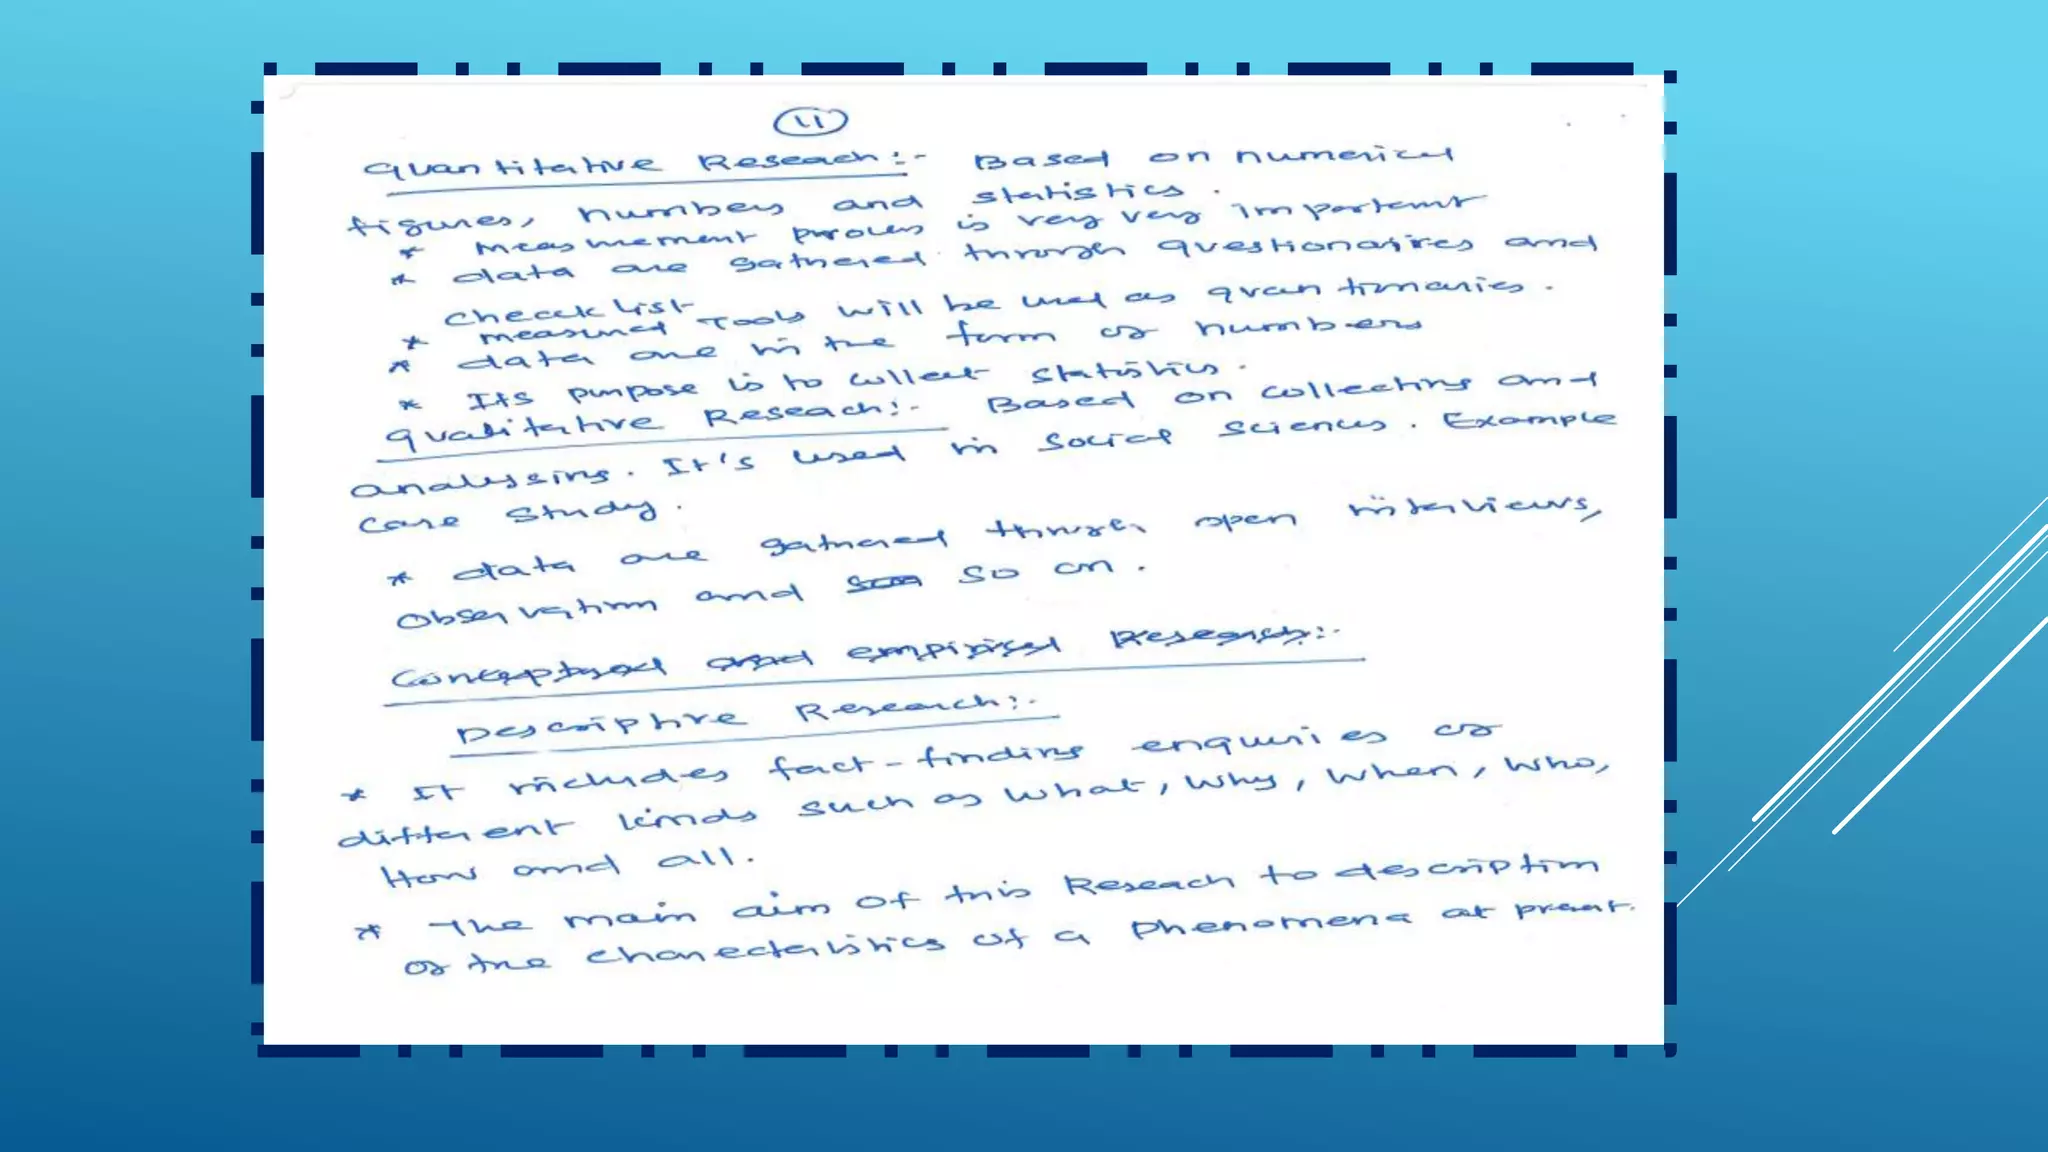 11
Quantitative Reseach:- Based on numerical
figures, numbers and statistics.
* Measurement process is very very important
* data are gathered through questionarires and
checck list
* measured Tools will be used as quantimaries.
* data are in the form of numbers
* Its purpose is to collect statistics.
Qualitative Reseach:- Based on collecting and
analyseing. It's used in Social Sciences. Example
Case Study.
* data are gathered through open interviews,
Observation and so on.
Conceptual and empirical Research:-
Descriptive Research:-
* It includes fact-finding enquiries of
different kinds such as what, why, when, who,
How and all.
* The main aim of this Reseach to description
of the charecteristics of a phenomena at present.